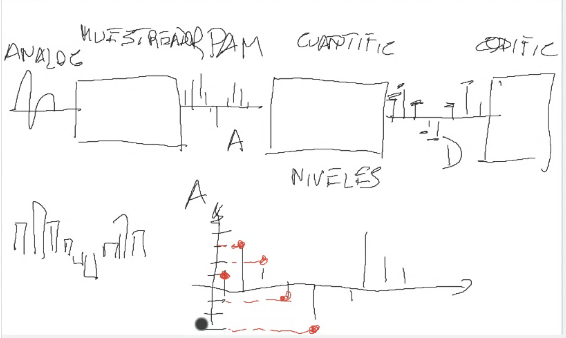 ANALOG MUESTREADOR PAM CUANTIFIC CODIFIC
A D
NIVELES
A